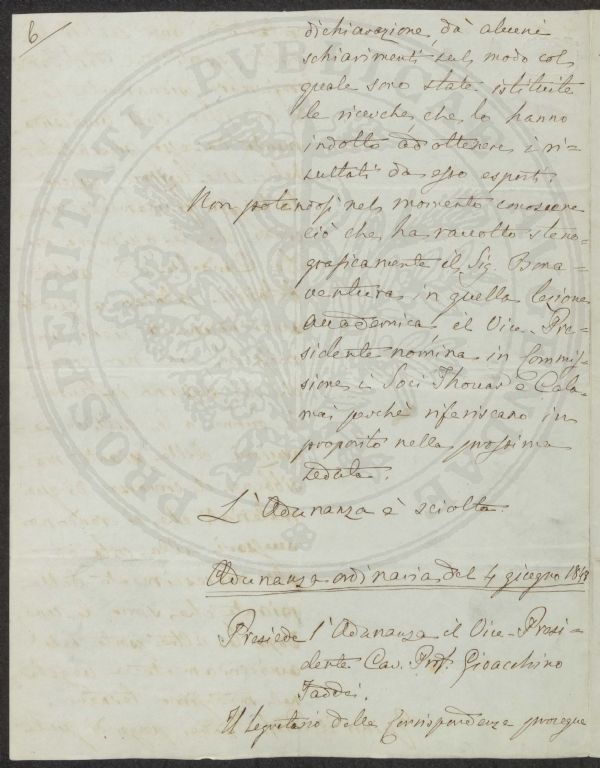 6
dichiarazione, dà alcuni
schiarimenti sul modo col
quale sono state istituite
le ricerche, che lo hanno
indotto ad ottenere i ri=
sultati da esso esposti.
Non potendosi nel momento conoscere
ciò che ha raccolto steno=
graficamente il Sig. Bona=
ventura in quella lezione
Accademica il Vice-Pre=
sidente nomina in Commis=
sione i Soci Thouar e Cala=
mai perchè riferiscano in
proposito nella prossima
seduta.
L'Adunanza è sciolta
Adunanza ordinaria del 4 giugno 1843
Presiede l'Adunanza il Vice-Presi=
dente Cav. Prof. Gioacchino
Taddei.
Il Segretario delle Corrispondenze porge
PROSPERITATI PVBLICAE